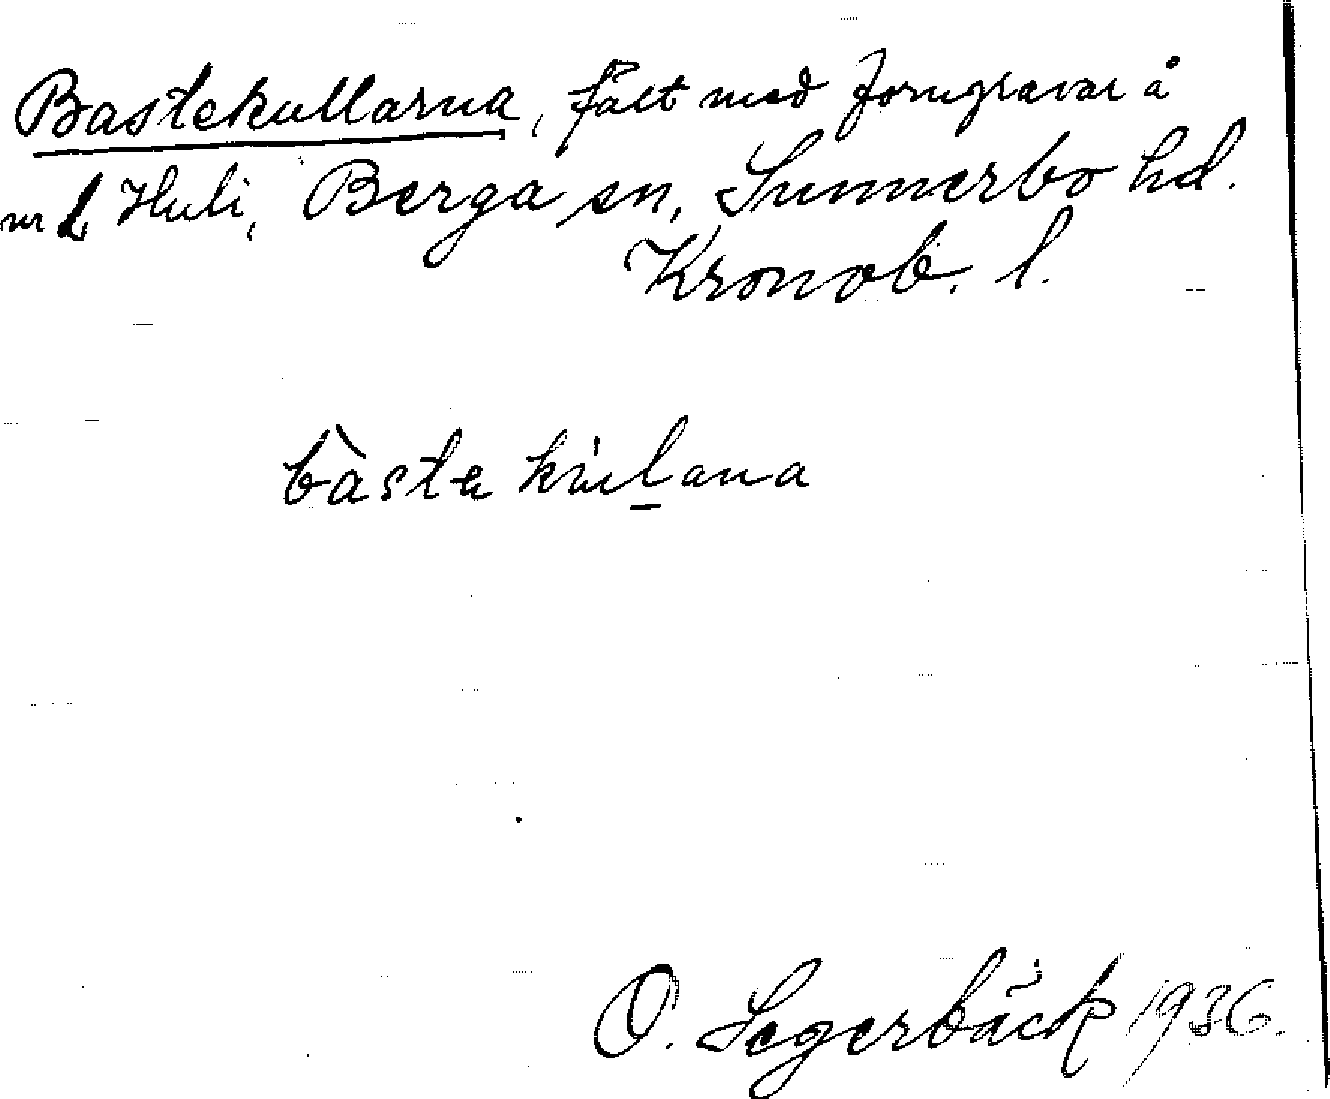 Bastekullarna, fält med forngravar å
nr 1 Huli, Berga sn, Sunnerbo hd.
Kronob. l.
bàste kulana
O. Segerbäck 1936.